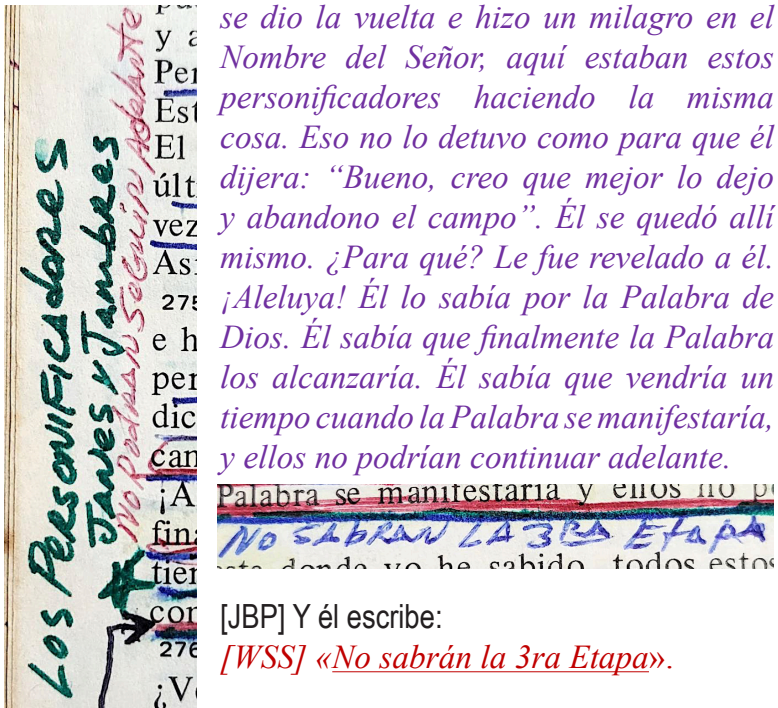 Los Personificadores
Janes y Jambres
No podran seguir adelante
y a
Per
Est
El
últi
vez
As
275
e h
per
dic
can
¡A
fina
tier
con
276
¿V
se dio la vuelta e hizo un milagro en el
Nombre del Señor, aquí estaban estos
personificadores haciendo la misma
cosa. Eso no lo detuvo como para que él
dijera: “Bueno, creo que mejor lo dejo
y abandono el campo”. Él se quedó allí
mismo. ¿Para qué? Le fue revelado a él.
¡Aleluya! Él lo sabía por la Palabra de
Dios. Él sabía que finalmente la Palabra
los alcanzaría. Él sabía que vendría un
tiempo cuando la Palabra se manifestaría,
y ellos no podrían continuar adelante.
Palabra se manifestaría y ellos no p
NO SABRAN LA 3RA Etapa
donde yo he sabido, todos estos
[JBP] Y él escribe:
[WSS] «No sabrán la 3ra Etapa».